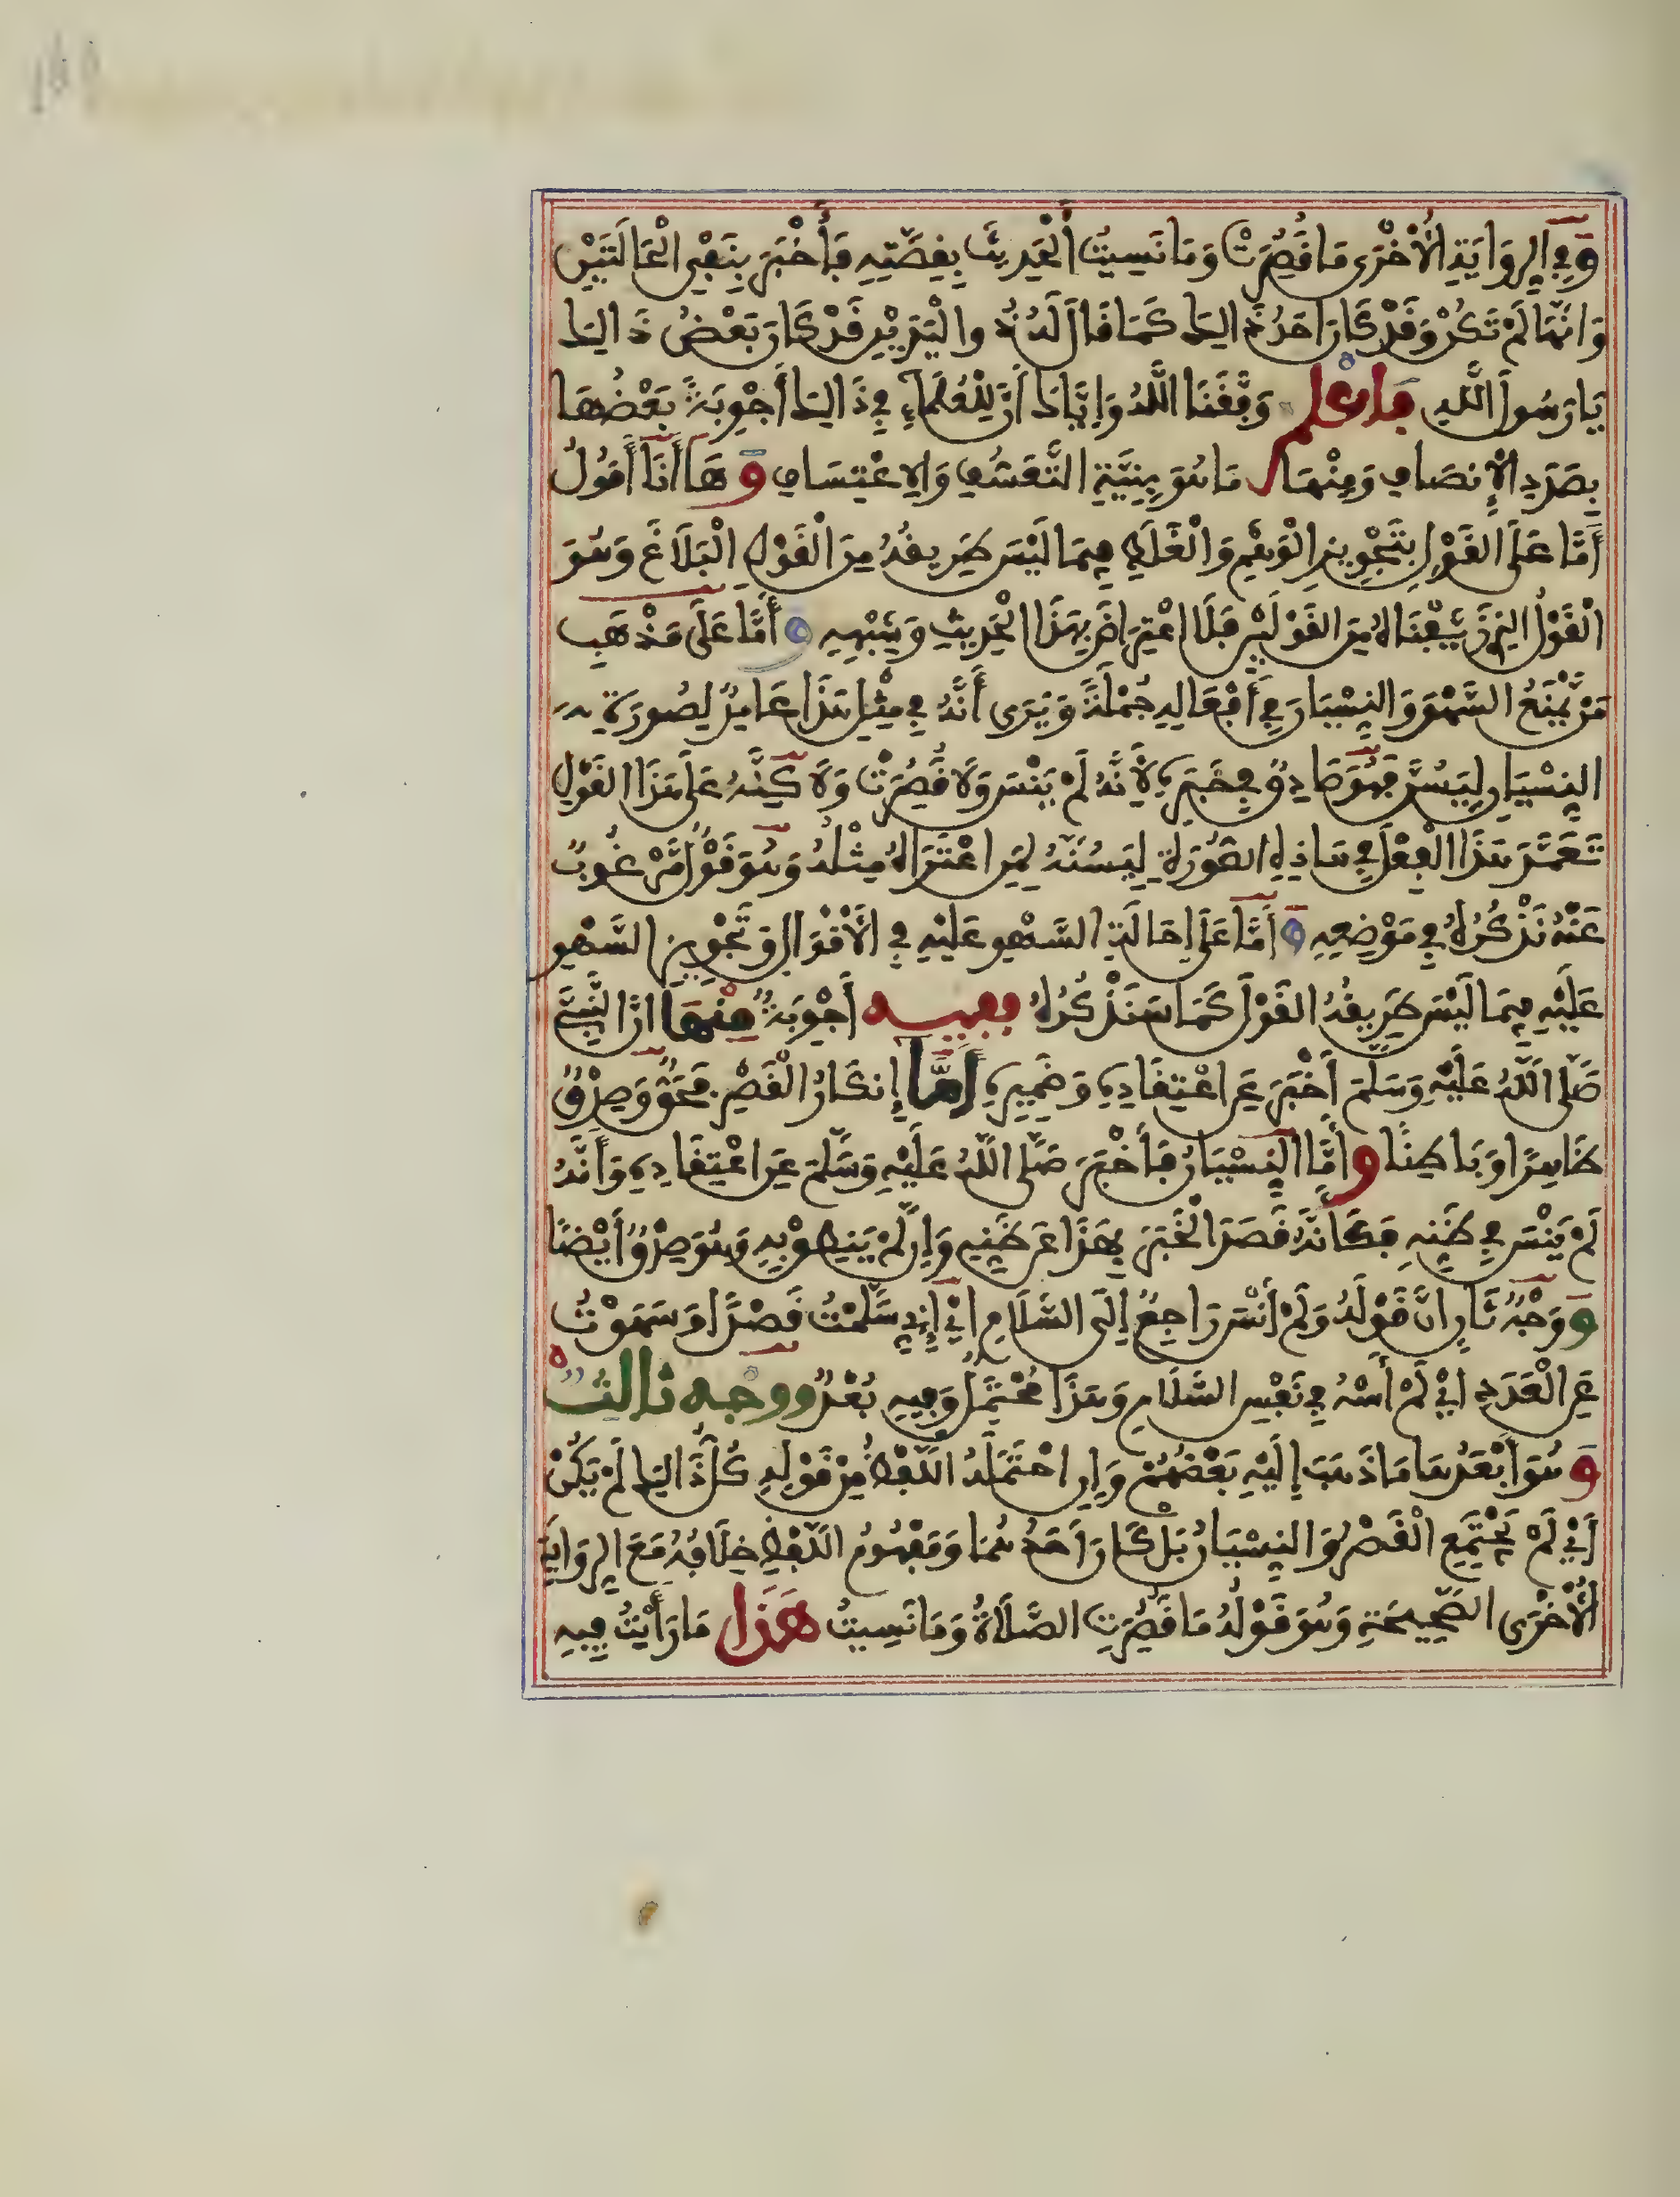 وَفِي الرِّوَايَةِ الْأُخْرَى مَا قَصُرَتْ وَمَا نَسِيتُ الْحَدِيثَ بِقِصَّتِهِ فَأَخْبَرَ بِنَفْيِ الْحَالَتَيْنِ
وَانَّهَا لَمْ تَكُنْ وَقَدْ كَانَ احَدُ ذَالِكَ كَمَا قَالَ لَهُ ذُو الْيَدَيْنِ قَدْ كَانَ بَعْضُ ذَالِكَ
يَا رَسُولَ اللَّهِ فَاعْلَمْ وَفَّقَنَا اللَّهُ وَإِيَّاكَ أَنَّ لِلْعُلَمَاءِ فِي ذَالِكَ أَجْوِبَةً بَعْضُهَا
بِصَدَدِ الْإِنصَافِ وَمِنْهَا مَا هُوَ بِنِيَّةِ التَّعَسُّفِ وَالِاعْتِسَافِ وَهَا أَنَا أَقُولُ
أَمَّا عَلَى الْقَوْلِ بِتَجْوِيزِ الْوَهْمِ وَالْغَلَطِ فِيمَا لَيْسَ طَرِيقُهُ مِنَ الْقَوْلِ الْبَلَاغَ وَهُوَ
الْقَوْلُ الذِي زَيَّفْنَاهُ مِنَ الْقَوْلَيْنِ فَلَا اعْتِرَاضَ بِهَذَا الْحَدِيثِ وَشِبْهِهِ وَأَمَّا عَلَى مَذْهَبِ
مَنْ يَّمْنَعُ السَّهْوَ وَالنِّسْيَانَ فِي أَفْعَالِهِ جُمْلَةً وَيَرَى أَنَّهُ فِي مِثْلِ هَذَا عَامِدٌ لِصُورَةِ
النِّسْيَانِ لِيَسُنَّ فَهُوَ صَادِقٌ فِي خَبَرِهِ لِأَنَّهُ لَمْ يَنْسَ وَلَا قَصُرَتْ وَلَاكِنَّهُ عَلَى هَذَا الْقَوْلِ
تَعَمَّدَ هَذَا الْفِعْلَ فِي هَاذِهِ الصُّورَةِ لِيَسُنَّهُ لِمَنِ اعْتَرَاهُ مِثْلُهُ وَهُوَ قَوْلٌ مَّرْغُوبٌ
عَنْهُ نَذْكُرُهُ فِي مَوْضِعِهِ وَأَمَّا عَلَى إِحَالَةِ السَّهْوِ عَلَيْهِ فِي الْأَقْوَالِ وَتَجْوِيزِ السَّهْوِ
عَلَيْهِ فِيمَا لَيْسَ طَرِيقُهُ الْقَوْلَ كَمَا سَنَذْكُرُهُ فَفِيهِ أَجْوِبَةٌ مِنْهَا انَّ النَّبِيَّ
صَلَّى اللَّهُ عَلَيْهِ وَسَلَّمَ أَخْبَرَ عَنِ اعْتِقَادِهِ وَضَمِيرِهِ أَمَّا إِنكَارُ الْقَصْرِ فَحَقٌّ وَصِدْقٌ
ظَاهِرًا وَبَاطِنًا وَأَمَّا النِّسْيَانُ فَأَخْبَرَ صَلَّى اللَّهُ عَلَيْهِ وَسَلَّمَ عَنِ اعْتِقَادِهِ وَأَنَّهُ
لَمْ يَنْسَ فِي ظَنِّهِ فَكَانَّهُ قَصَدَ الْخَبَرَ بِهَذَا عَن ظَنِّهِ وَإِن لَّمْ يَنطِقْ بِهِ وَهُوَ صِدْقٌ أَيْضًا
وَوَجْهٌ ثَانٍ انَّ قَوْلَهُ وَلَمْ أَنْسَ رَاجِعٌ إِلَى السَّلَامِ أَيْ إِنِّي سَلَّمْتُ قَصْدًا وَسَهَوْتُ
عَنِ الْعَدَدِ أَيْ لَمْ أَسْهُ فِي نَفْسِ السَّلَامِ وَهَذَا مُحْتَمَلٌ وَفِيهِ بُعْدٌ وَوَجْهٌ ثَالِثٌ
وَهُوَ أَبْعَدُهَا مَا ذَهَبَ إِلَيْهِ بَعْضُهُمْ وَإِنِ احْتَمَلَهُ اللَّفْظُ مِنْ قَوْلِهِ كُلُّ ذَالِكَ لَمْ يَكُنْ
أَيْ لَمْ يَجْتَمِعِ الْقَصْرُ وَالنِّسْيَانُ بَلْ كَانَ أَحَدُهُمَا وَمَفْهُومُ اللَّفْظِ خِلَافُهُ مَعَ الرِّوَايَةِ
الْأُخْرَى الصَّحِيحَةِ وَهُوَ قَوْلُهُ مَا قَصُرَتِ الصَّلَاةُ وَمَا نَسِيتُ هَذَا مَا رَأَيْتُ فِيهِ